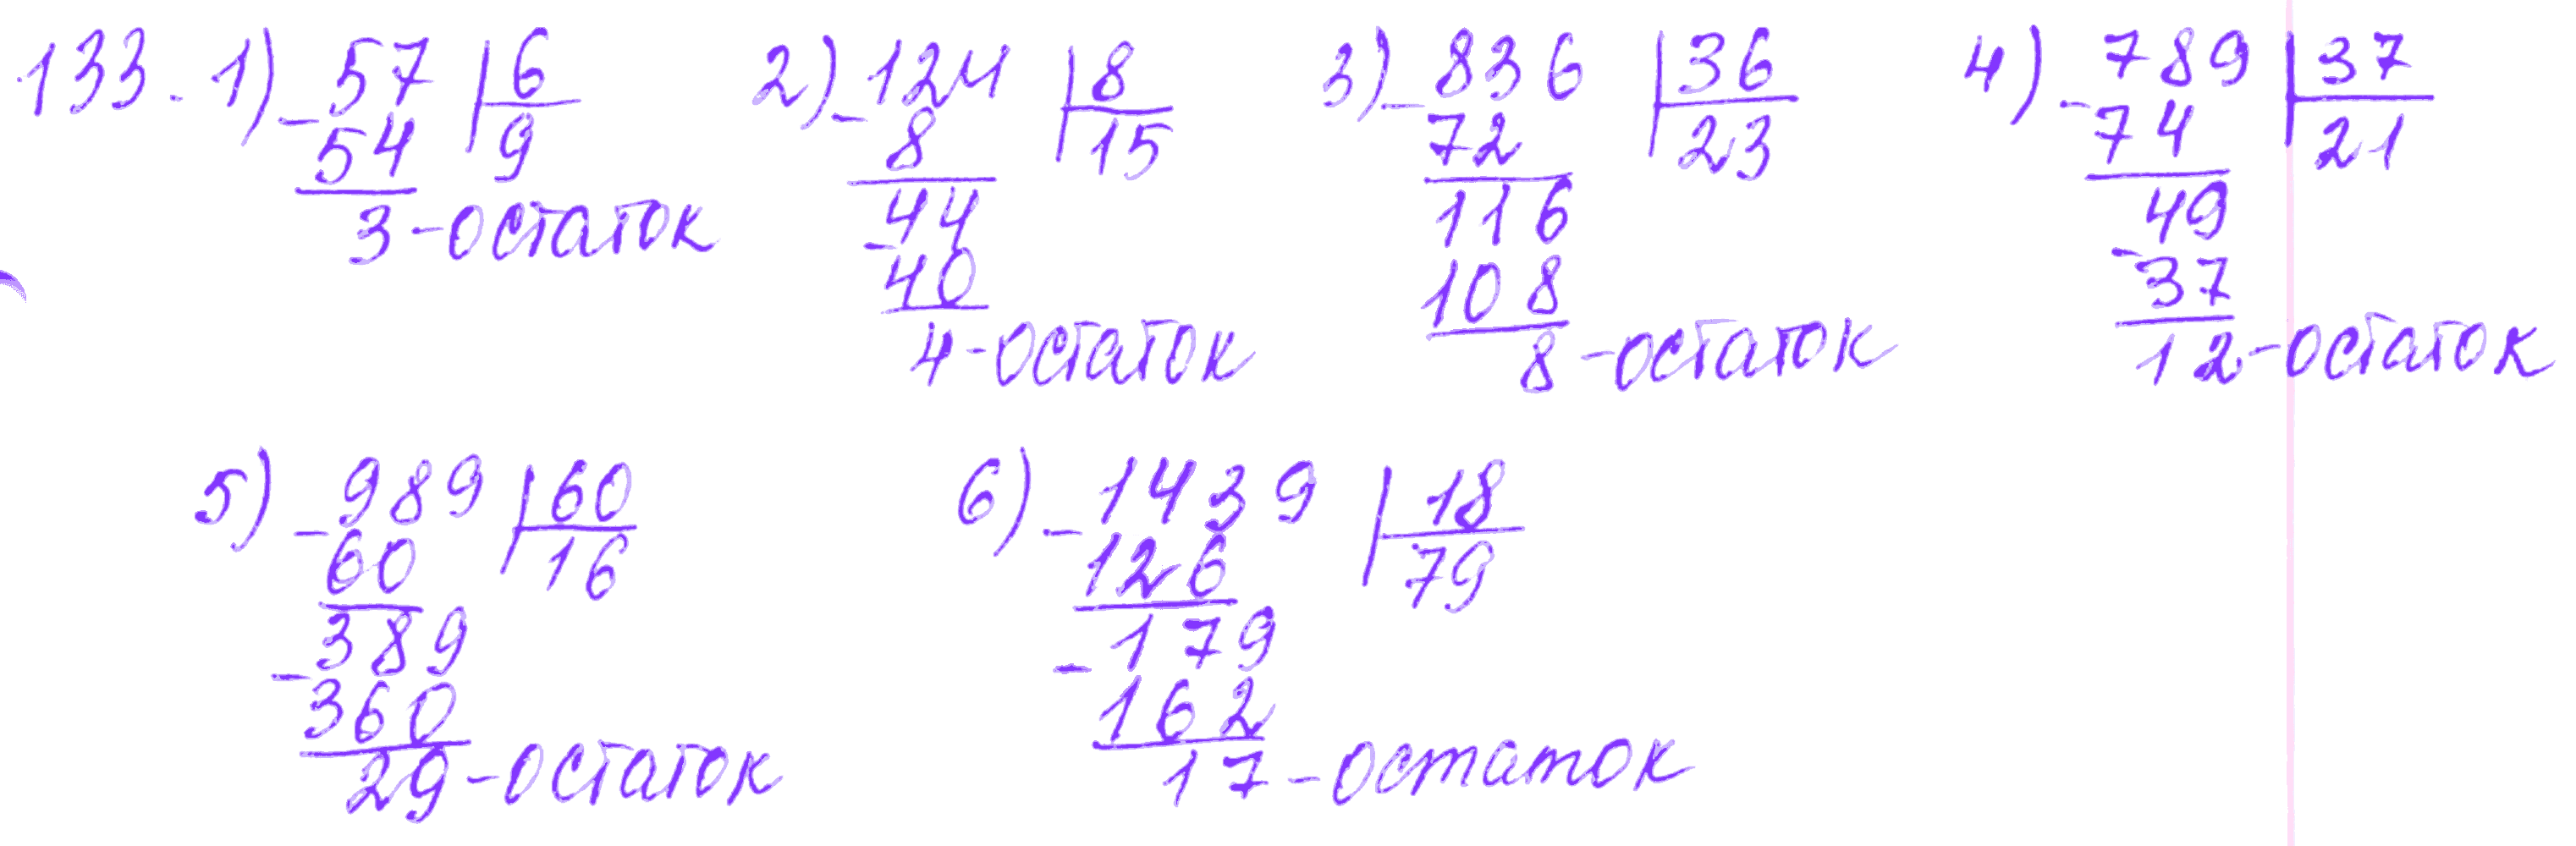 133. 1) -57 | 6 2) -124 | 8 3) -836 | 36 4) -789 | 37
54 9 8 15 72 23 74 21
3 - остаток -44 116 -49
40 108 37
4 - остаток 8 - остаток 12 - остаток
5) -989 | 60 6) -1439 | 18
60 16 126 79
-389 -179
360 162
29 - остаток 17 - остаток